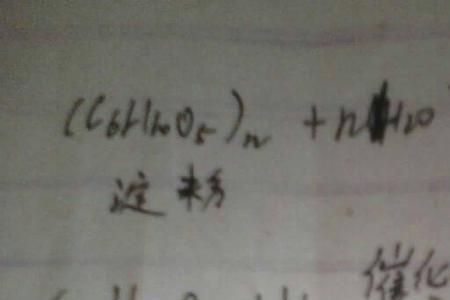 (C6H10O5)n + nH2O
淀粉
催化